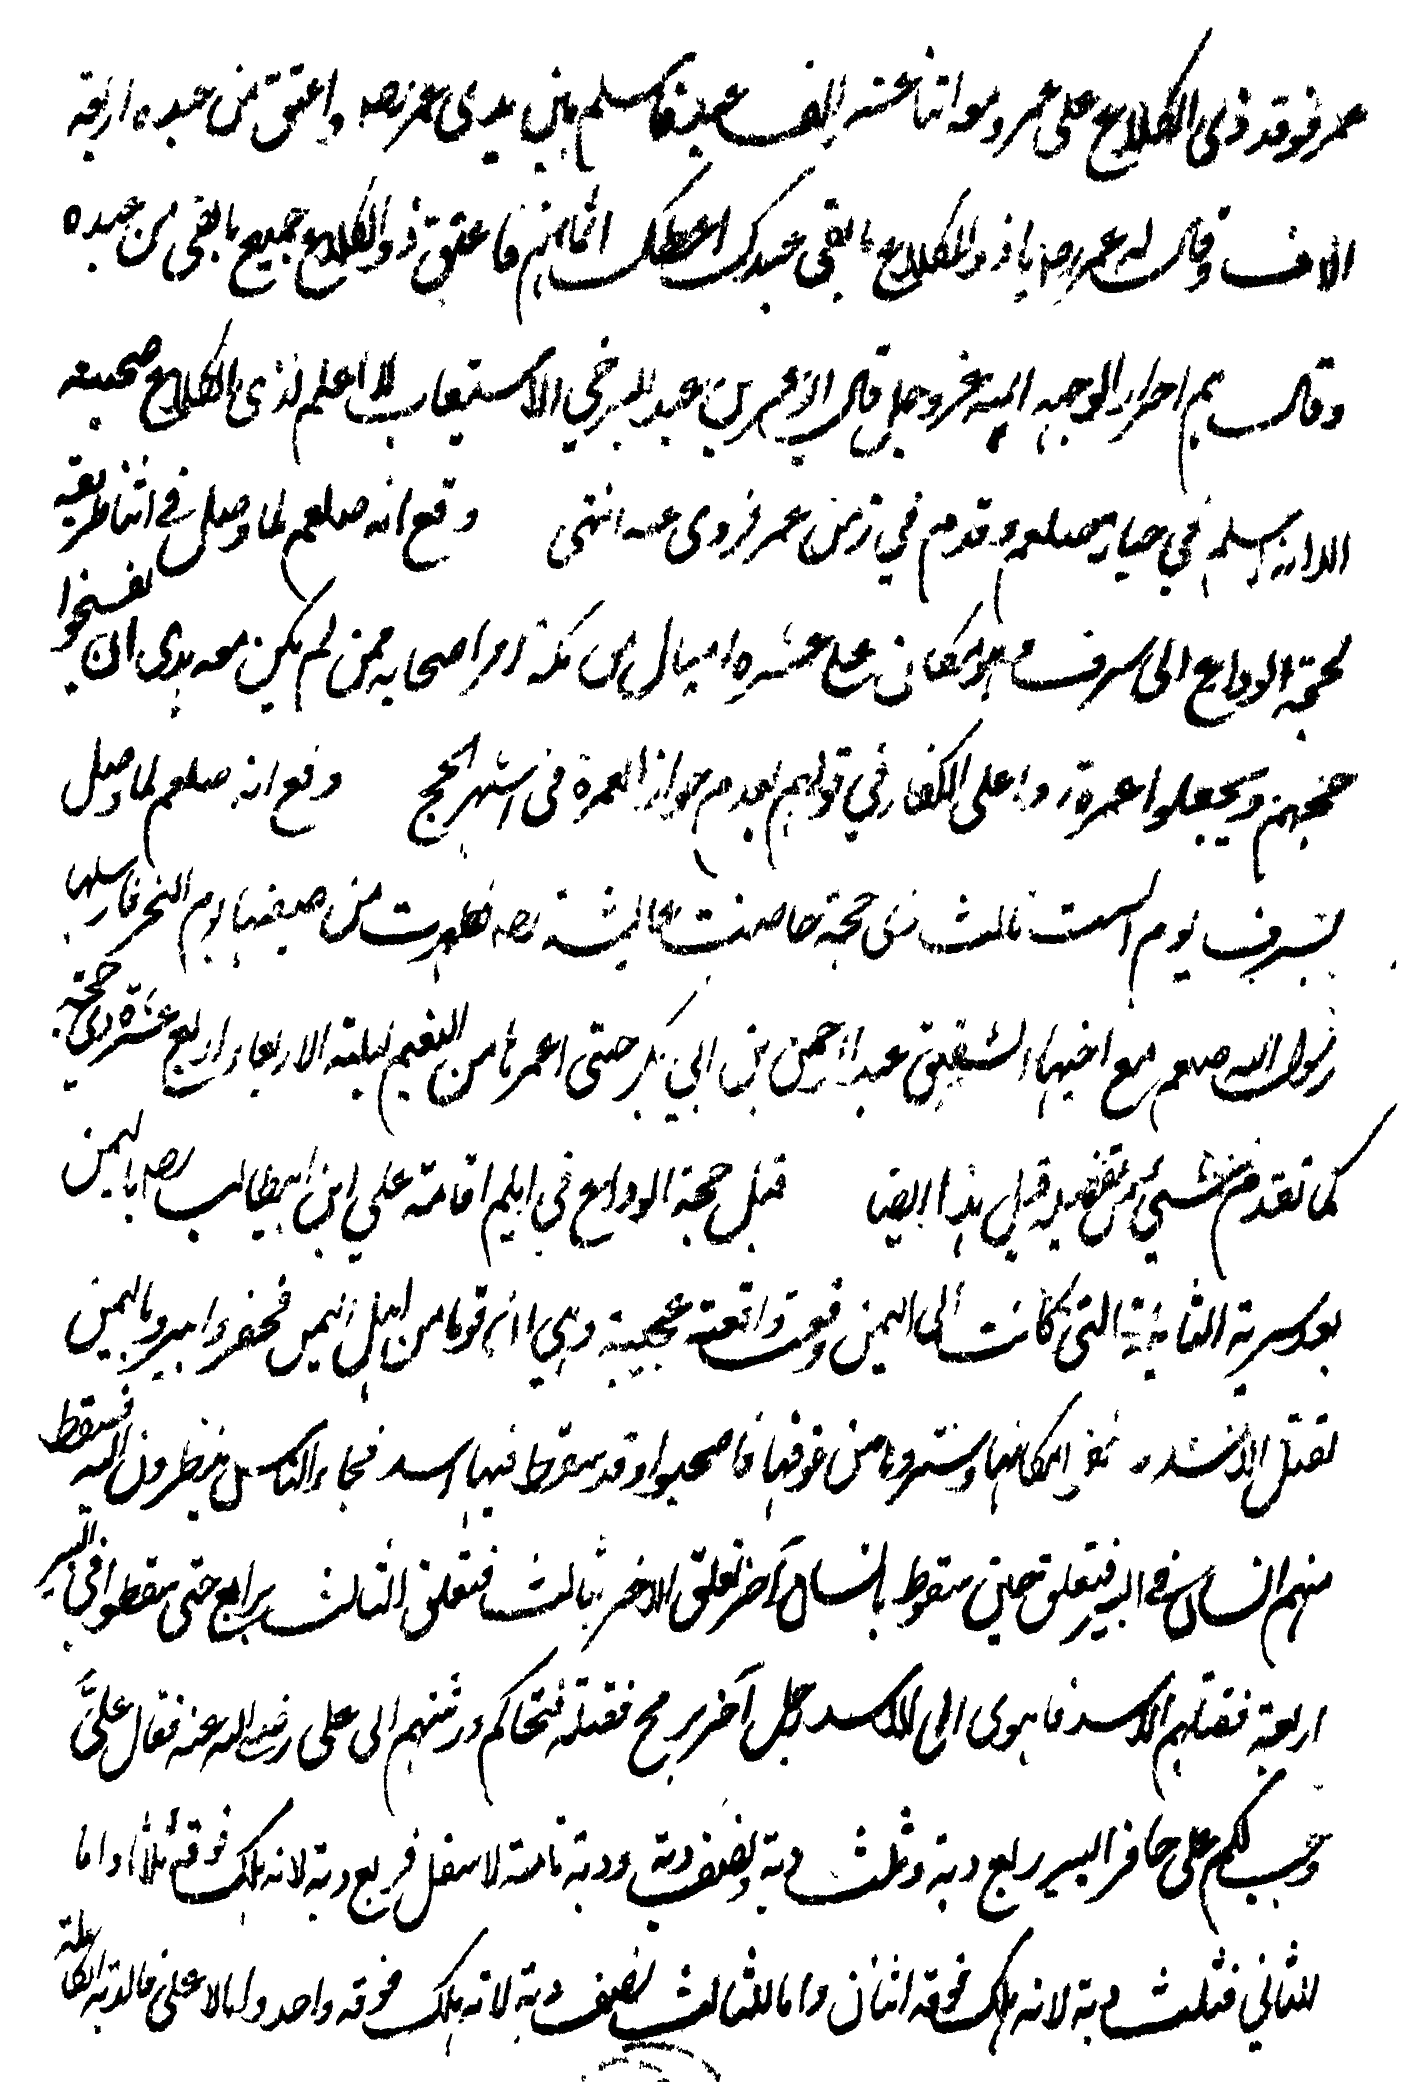 عمر فوقد ذى الكلاع على عمر ومعه اثنا عشر الف عبد فاسلم بين يدى عمر رضه واعتق من عبيده اربعة
الاف وقال له عمر رضه يا ذو الكلاع ما بقى عبدك اعطك اثمانهم فاعتق ذو الكلاع جميع ما بقى من عبيده
وقال هم احرار لوجه الله عز وجل قال ابو عمر بن عبد البر في الاستيعاب لا اعلم لذى الكلاع صحبة
الا انه اسلم في حياته صلعم وقدم في زمن عمر فروى عنه انتهى وقع انه صلعم لما وصل في اثنا طريقه
لحجة الوداع الى سرف وهو مكان على عشره اميال من مكة امر اصحابه ممن لم يكن معه هدى ان يفسخوا
حجهم ويجعلوا عمرة ردا على الكفار في قولهم بعدم جواز العمرة في اشهر الحج وقع انه صلعم لما وصل
بسرف يوم السبت ثالث ذى حجة حاضت عائشة رضه فطهرت من حيضها يوم النحر فارسلها
رسول الله صلعم مع اخيها الشقيق عبد الرحمن بن ابي بكر حتى اعمرها من التنعيم ليلة الاربعا رابع عشرة ذى حجة
كما تقدم شيئ من تفصيله قبل هذا ايضا قبل حجة الوداع في ايام اقامة علي ابن ابيطالب رضه باليمن
بعد سرية الثانية التى كانت الى اليمن وقعت واقعة عجيبة وهي ان قوما من اهل اليمن فحفروا بيرو باليمن
لقتل الاسد مكانها وستروها من فوقها فاصبحوا وقد سقط فيها اسد فجاء الناس ينظرون اليه فسقط
منهم انسان في البير فتعلق حين سقوط بانسان آخر تعلق الاخر بثالث فتعلق الثالث برابع حتى سقطوا في البير
اربعة فقتلهم الاسد فاهوى الى الاسد رجل آخر برمح فقتله فتحاكم ورثتهم الى على رضي الله عنه فقال علىّ
وجب لكم على حافر البير ربع دية وثلث دية ونصف دية ودية تامة لاسفل فربع دية لانه هلك فوقه ثلاثا واما
للثاني فثلث دية لانه هلك فوقه اثنان واما للثالث نصف دية لانه هلك فوقه واحد واما لاعلى فالدية الكاملة